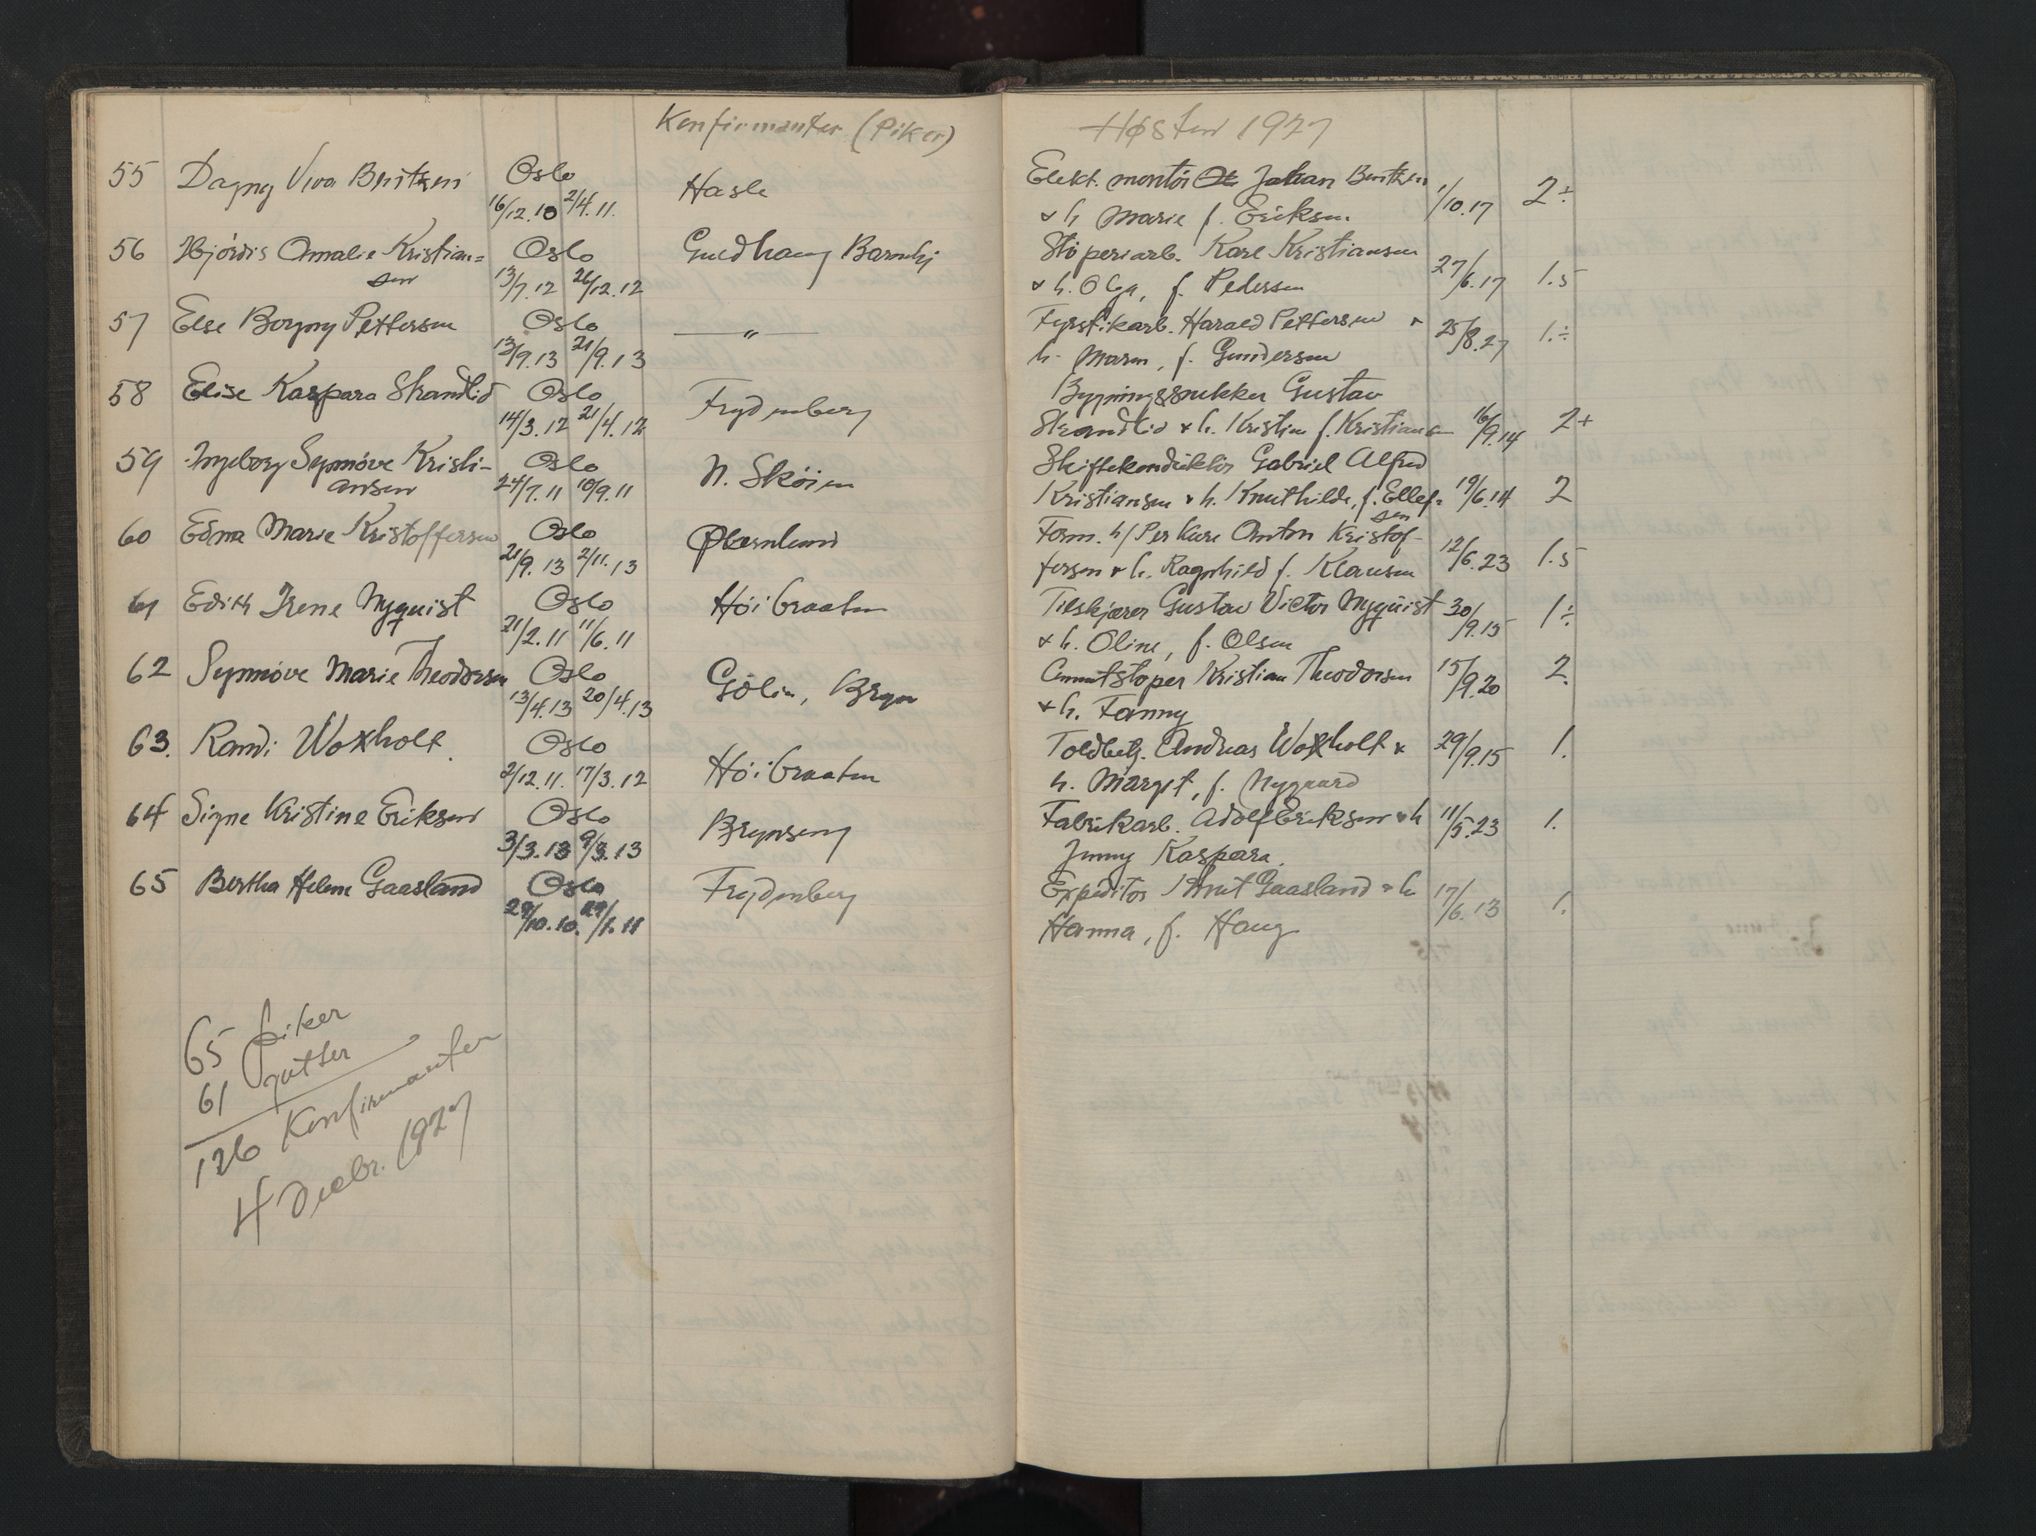 Konfirmanter (Piker)
Høsten 1927
55 Dagny Viva Berntsen Oslo 16/12.10 2/4.11. Hasle
Elekt. montör Johan Berntsen
& h. Marie f. Eriksen 1/10.17 2÷
56 Hjördis Amalie Kristian=
sen Oslo 13/7.12 26/12.12 Guldhaug Barnehj
Stöperiarb. Karl Kristiansen
& h. Olga, f. Pedersen 27/6.17 1.5
57 Else Borgny Pettersen Oslo 13/9.13 21/9.13 — " —
Fyrstikarb. Harald Pettersen &
h. Maren, f. Gundersen 25/8.27 1.÷
58 Elise Kaspara Strandlid Oslo 14/3.12 21/4.12 Frydenberg
Bygningssnekker Gustav
Strandlid & h. Kristine f. Kristiansen 16/9.14 2+
59 Ingeborg Synnöve Kristi-
ansen Oslo 24/7.11 10/9.11 N. Sköien
Skiftekonduktör Gabriel Alfred
Kristiansen & h. Knuthilde, f. Ellef=
sen 19/6.14 2
60 Edna Marie Kristoffersen Oslo 21/9.13 2/11.13 Økernlund
Form. h/ Per Kure Anton Kristof-
fersen & h. Ragnhild f. Klausen 12/6.23 1.5
61 Edith Irene Nyquist Oslo 21/2.11 11/6.11 Höibraaten
Tilskjærer Gustav Victor Nyquist
& h. Oline, f. Olsen 30/9.15 1÷
62 Synnöve Marie Theodorsen Oslo 13/4.13 20/4.13 Gölin, Bryn
Kristian Theodorsen
& h. Fanny 15/9.20 2.
63. Randi Woxholt Oslo 2/12.11. 17/3.12 Höibraaten
Toldbetj. Andreas Woxholt &
h. Margit, f. Nygaard 29/9.15 1.
64 Signe Kristine Eriksen Oslo 3/3.13 9/3.13 Brynseng
Fabrikarb. Adolf Eriksen & h
Jenny Kaspara. 11/5.23 1.
65 Bertha Helene Gaasland Oslo 29/10.10. 29/1.11 Frydenberg
Expeditör Knut Gaasland & h
Hanna, f. Haug 17/6.13 1.
65 piker
61 gutter
126 Konfirmanter
4 Decbr. 1927